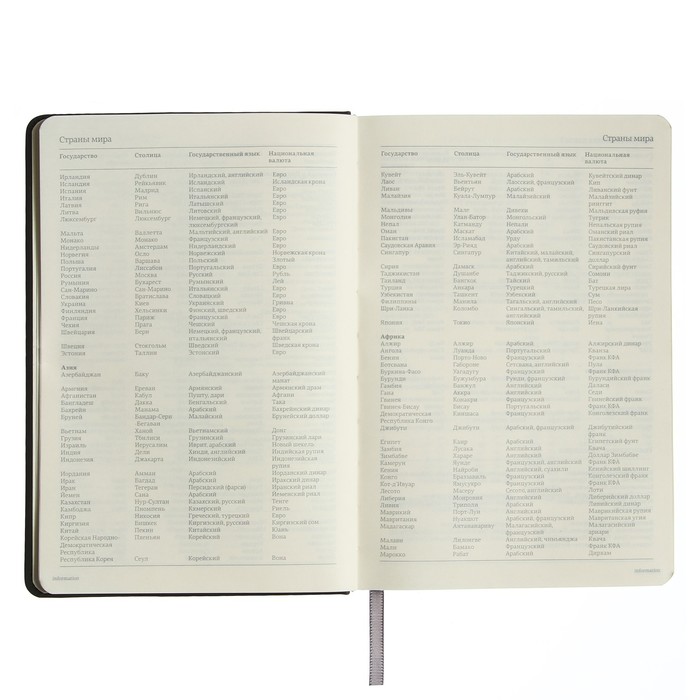 Страны мира
Государство Столица Государственный язык Национальная
валюта
Ирландия Дублин Ирландский, английский Евро
Исландия Рейкьявик Исландский Исландская крона
Испания Мадрид Испанский Евро
Италия Рим Итальянский Евро
Латвия Рига Латышский Евро
Литва Вильнюс Литовский Евро
Люксембург Люксембург Немецкий, французский, Евро
люксембургский
Мальта Валлетта Мальтийский, английский Евро
Монако Монако Французский Евро
Нидерланды Амстердам Нидерландский Евро
Норвегия Осло Норвежский Норвежская крона
Польша Варшава Польский Злотый
Португалия Лиссабон Португальский Евро
Россия Москва Русский Рубль
Румыния Бухарест Румынский Лей
Сан-Марино Сан-Марино Итальянский Евро
Словакия Братислава Словацкий Евро
Украина Киев Украинский Гривна
Финляндия Хельсинки Финский, шведский Евро
Франция Париж Французский Евро
Чехия Прага Чешский Чешская крона
Швейцария Берн Немецкий, французский, Швейцарский
итальянский франк
Швеция Стокгольм Шведский Шведская крона
Эстония Таллин Эстонский Евро
Азия
Азербайджан Баку Азербайджанский Азербайджанский
манат
Армения Ереван Армянский Армянский драм
Афганистан Кабул Пушту, дари Афгани
Бангладеш Дакка Бенгальский Така
Бахрейн Манама Арабский Бахрейнский динар
Бруней Бандар-Сери Малайский Брунейский доллар
-Бегаван
Вьетнам Ханой Вьетнамский Донг
Грузия Тбилиси Грузинский Грузинский лари
Израиль Иерусалим Иврит, арабский Новый шекель
Индия Дели Хинди, английский Индийская рупия
Индонезия Джакарта Индонезийский Индонезийская
рупия
Иордания Амман Арабский Иорданский динар
Ирак Багдад Арабский Иракский динар
Иран Тегеран Персидский (фарси) Иранский риал
Йемен Сана Арабский Йеменский риал
Казахстан Нур-Султан Казахский, русский Тенге
Камбоджа Пномпень Кхмерский Риель
Кипр Никосия Греческий, турецкий Евро
Киргизия Бишкек Киргизский, русский Киргизский сом
Китай Пекин Китайский Юань
Корейская Народно- Пхеньян Корейский Вона
Демократическая
Республика
Республика Корея Сеул Корейский Вона
Страны мира
Государство Столица Государственный язык Национальная
валюта
Кувейт Эль-Кувейт Арабский Кувейтский динар
Лаос Вьентьян Лаосский, французский Кип
Ливан Бейрут Арабский Ливанский фунт
Малайзия Куала-Лумпур Малайский Малайзийский
ринггит
Мальдивы Мале Мальдивская руфия
Монголия Улан-Батор Монгольский Тугрик
Непал Катманду Непали Непальская рупия
Оман Маскат Арабский Оманский риал
Пакистан Исламабад Урду Пакистанская рупия
Саудовская Аравия Эр-Рияд Арабский Саудовский риял
Сингапур Сингапур Китайский, малайский, Сингапурский
английский, тамильский доллар
Сирия Дамаск Арабский Сирийский фунт
Таджикистан Душанбе Таджикский, русский Сомони
Таиланд Бангкок Тайский Бат
Турция Анкара Турецкий Турецкая лира
Узбекистан Ташкент Узбекский Сум
Филиппины Манила Тагальский, английский Песо
Шри-Ланка Коломбо Сингальский, тамильский, Шри-Ланкийская
английский рупия
Япония Токио Японский Иена
Африка
Алжир Алжир Арабский Алжирский динар
Ангола Луанда Португальский Кванза
Бенин Порто-Ново Французский Франк КФА
Ботсвана Габороне Сетсвана, английский Пула
Буркина-Фасо Уагадугу Французский Франк КФА
Бурунди Бужумбура Рунди, французский Бурундийский франк
Гамбия Банжул Английский Даласи
Гана Аккра Английский Седи
Гвинея Конакри Французский Гвинейский франк
Гвинея-Бисау Бисау Португальский Франк КФА
Демократическая Киншаса Французский Конголезский франк
Республика Конго
Джибути Джибути Арабский, французский Джибутийский
франк
Египет Каир Арабский Египетский фунт
Замбия Лусака Английский Квача
Зимбабве Хараре Английский Доллар Зимбабве
Камерун Яунде Французский, английский Франк КФА
Кения Найроби Английский, суахили Кенийский шиллинг
Конго Браззавиль Французский
Кот-д'Ивуар Французский Франк КФА
Лесото Масеру Сесото, английский Лоти
Либерия Монровия Английский Либерийский доллар
Ливия Триполи Арабский Ливийский динар
Маврикий Порт-Луи Английский Маврикийская рупия
Мавритания Нуакшот Арабский, французский Мавританская угия
Мадагаскар Антананариву Малагасийский, Малагасийский
французский ариари
Малави Лилонгве Английский, чиньянджа Квача
Мали Бамако Французский Франк КФА
Марокко Рабат Арабский Дирхам